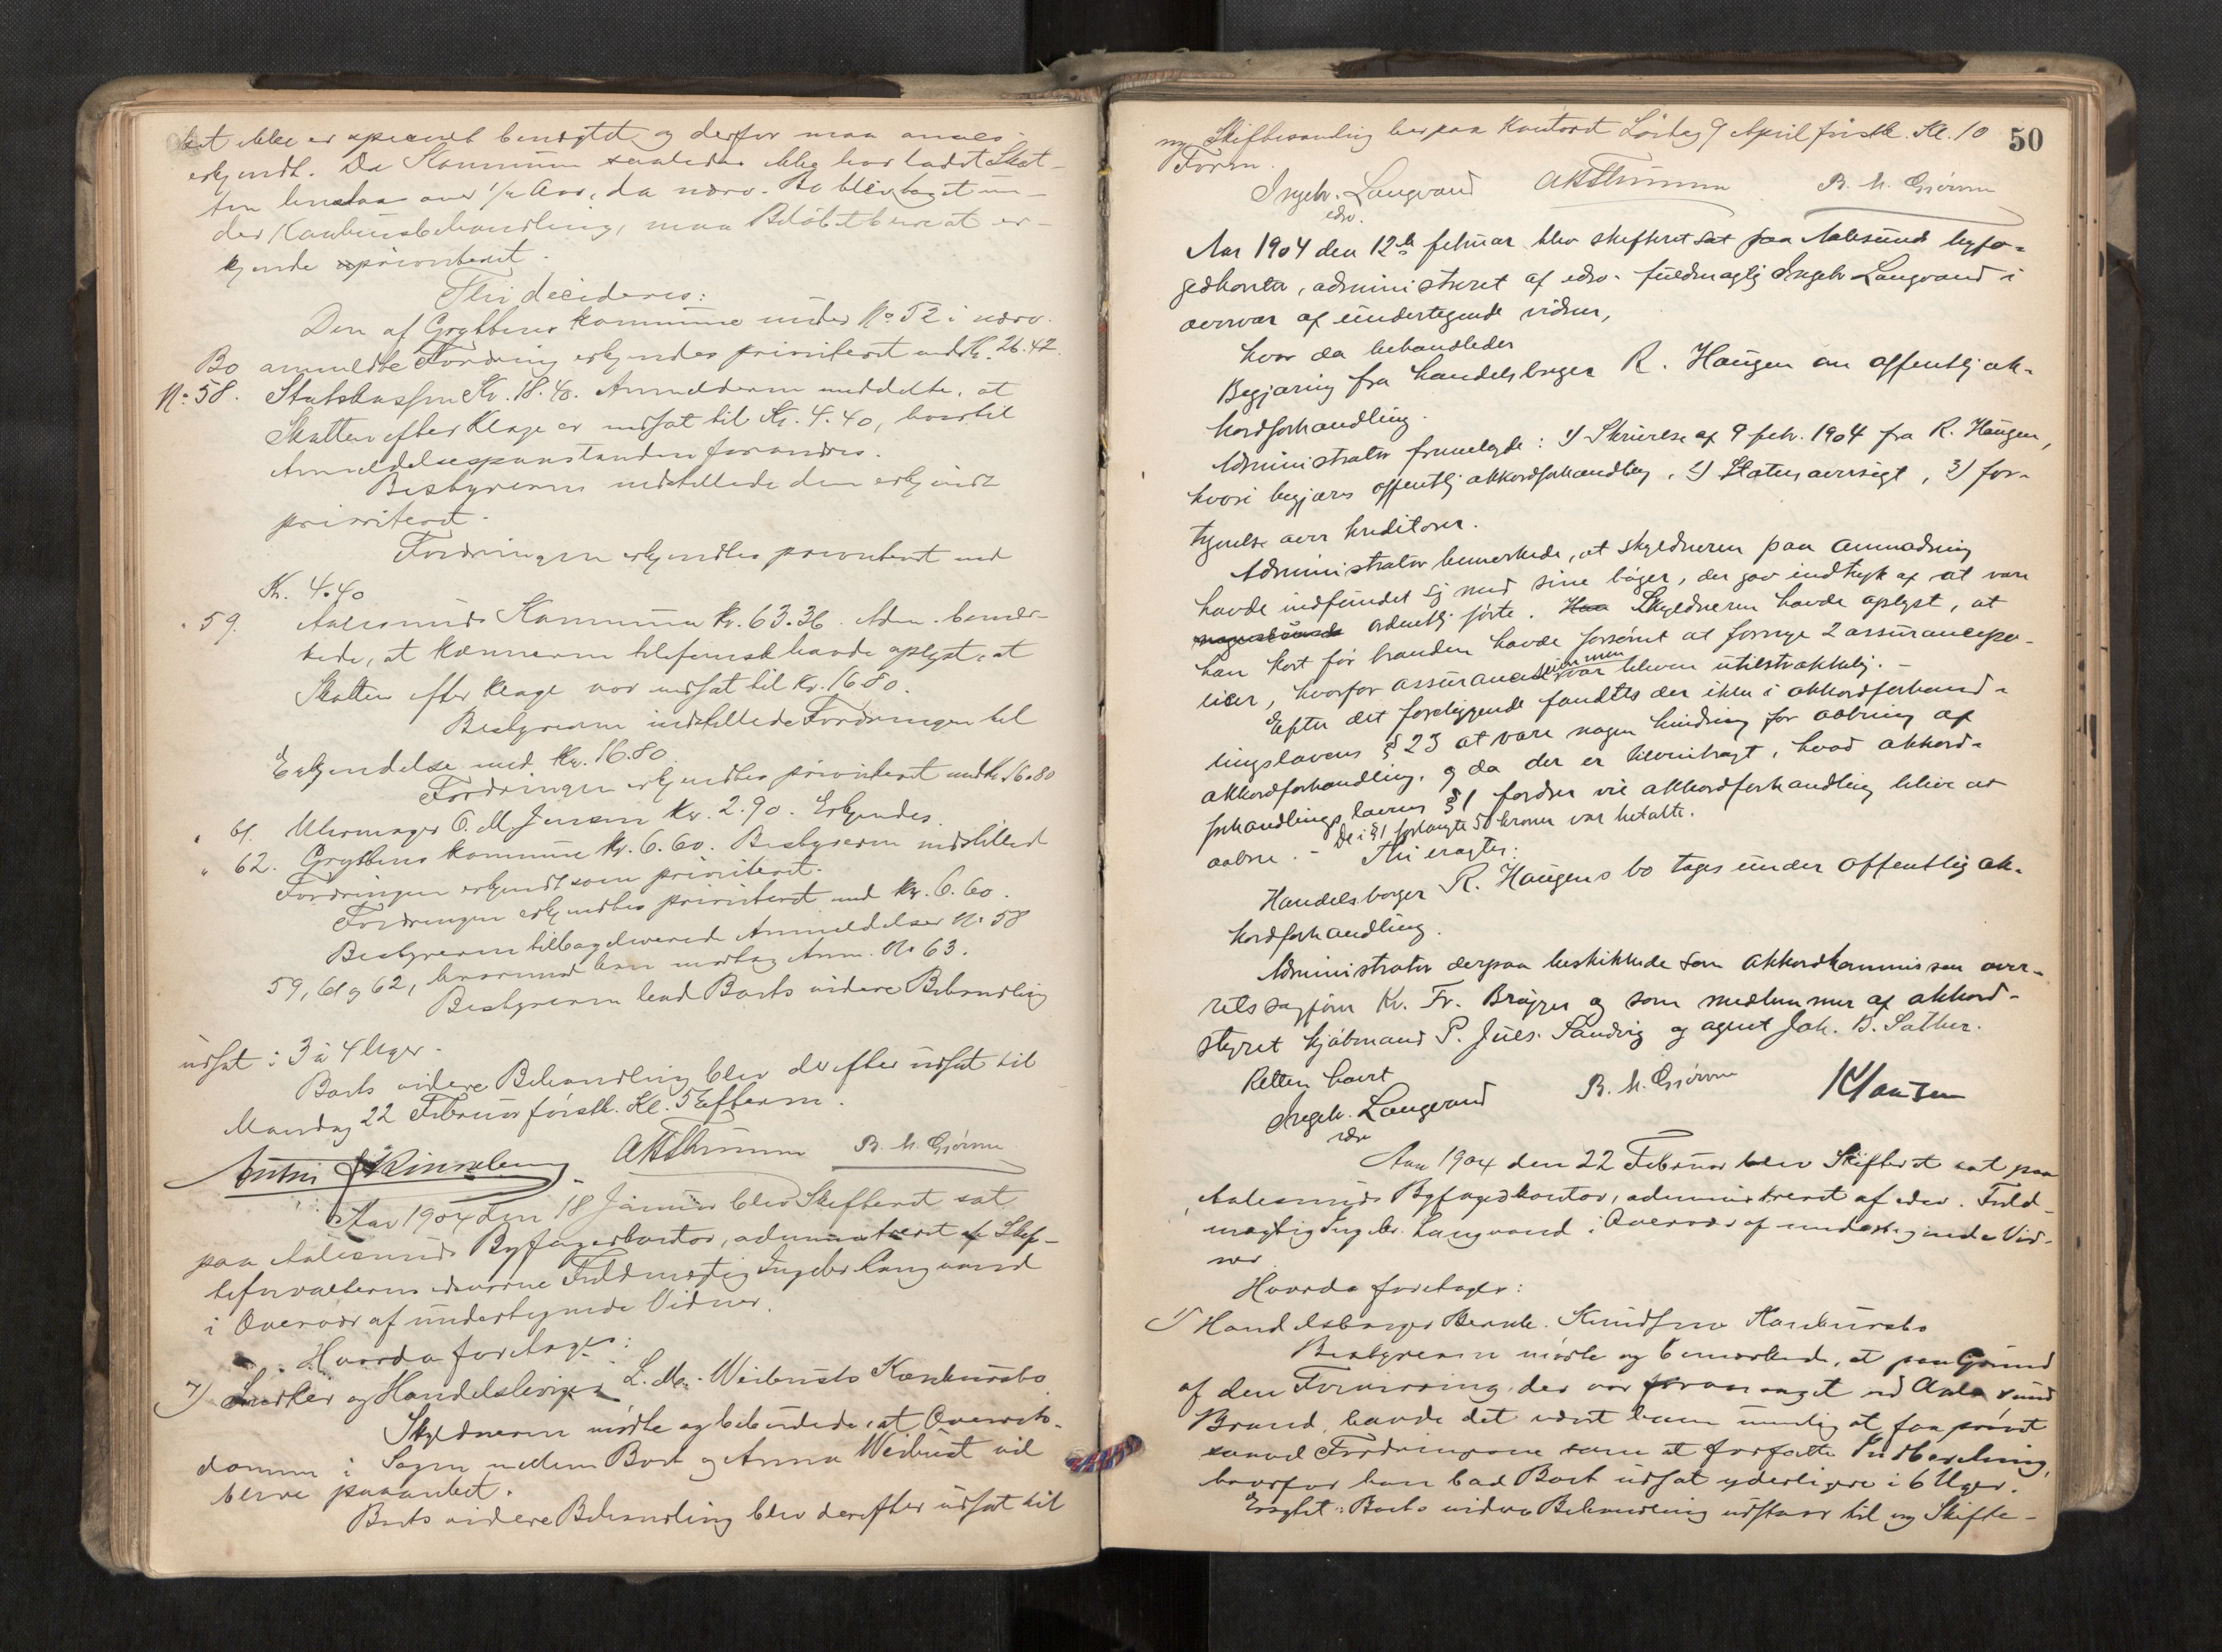 ket ikke er specielt benægtet og derfor maa ansees
erkjendt. Da Kommunen saaledes ikke har ladet Skat-
ten henstaa over 1/2 Aar, da nærv. Bo blev taget un-
der Konkursbehandling, maa Beløbet blive at er-
kjende prioriteret.
Thi decideres:
Den af Gryttens Kommune under No 52 i nærv.
Bo anmeldte Fordring erkjendes prioriteret med Kr. 26.42.
No 58. Statskassen Kr. 18.40. Anmelderen meddelte, at
Skatten efter Klage er nedsat til Kr. 4.40, hvortil
Anmeldelsespaastanden forandres.
Bestyreren indstillede den erkjendt
prioriteret.
Fordringen erkjendtes prioriteret med
Kr. 4.40
" 59. Aalesunds Kommune Kr. 63.36. Adm. bemær-
kede, at Kæmneren telefonisk havde oplyst, at
Skatten efter Klage var nedsat til Kr. 16.80.
Bestyreren indstillede Fordringen til
Erkjendelse med Kr. 16.80.
Fordringen erkjendtes prioriteret med Kr. 16.80
" 61. Uhrmager O. M. Jensen Kr. 2.90. Erkjendes.
" 62. Gryttens Kommune Kr. 6.60. Bestyreren indstilled
Fordringen erkjendt som prioriteret.
Fordringen erkjendtes prioriteret med Kr. 6.60.
Bestyreren tilbageleverede Anmeldelser No 58
59, 61 og 62, hvorimod han modtog Anm. No 63.
Bestyreren bad Boets videre Behandling
udsat i 3 à 4 Uger.
Boets videre Behandling blev derefter udsat til
Mandag 22 Februar førstk. Kl. 5 Efterm.
AKThunem B. M. Gjørum
Aar 1904 den 18 Januar blev Skifteret sat
paa Aalesunds Byfogedkontor, administreret af Skif-
teforvalterens edsvorne Fuldmægtig Ingebr. Langvand
i Overvær af undertegnede Vidner.
Hvorda foretages:
7) Snedker og Handelsborger L. M. Weibusts Konkursbo
Skyldneren mødte og bebudede, at Overrets-
dommen i Sagen mellem Boet og Anna Weibust vil
blive paaanket.
Boets videre Behandling blev derefter udsat til
50
ny Skiftesamling her paa Kontoret Lørdag 9 April førstk. Kl. 10
Form.
Ingebr. Langvand AKThunem B. M. Gjørum
edsv.
Aar 1904 den 12te februar blev skifteret sat paa Aalesunds byfo-
gedkontor, administreret af edsv. fuldmægtig Ingebr Langvand i
overvær af undertegnede vidner,
hvor da behandledes
Begjæring fra handelsborger R. Haugen om offentlig ak-
kordforhandling.
Administrator fremlagde: 1) Skrivelse af 9 febr. 1904 fra R. Haugen,
hvori begjæres offentlig akkordforhandling, 2) Statusoversigt, 3) for-
tegnelse over kreditorer.
Administrator bemerkede, at skyldneren paa anmodning
havde indfundet sig med sine bøger, der gav indtryk af at være
ordentlig førte. Skyldneren havde oplyst, at
han kort før branden havde forsømt at fornye 2 assurancepo-
liser, hvorfor assurancesummen var bleven utilstrækkelig. -
Efter det foreliggende fandtes der ikke i akkordforhand-
lingslovens § 23 at være nogen hindring for aabning af
akkordforhandling, og da der er tilveiebragt, hvad akkord-
forhandlingslovens § 1 fordrer vil akkordforhandling blive at
aabne. - De i § 1 forlangte 50 kroner var betalte.
Thi eragtes:
Handelsborger R. Haugens bo tages under offentlig ak-
kordforhandling.
Administrator derpaa beskikkede som akkordkommissær over-
retssagfører Kr. Fr. Brøgger og som medlemmer af akkord-
styret kjøbmand P. Juls. Sandvig og agent Joh. D. Sæther.
Retten hævet
Ingebr. Langvand B. M. Gjørum KHansen
edsv
Aar 1904 den 22 Februar blev Skifteret sat paa
Aalesunds Byfogedkontor, administreret af edsv. Fuld-
mægtig Ingebr. Langvand i Overvær af undertegnede Vid-
ner
Hvorda foretages:
1) Handelsborger Bernh. Knudsens Konkursbo
Bestyreren mødte og bemærkede, at paa Grund
af den Forvirring, der var foraarsaget ved Aalesunds
Brand, havde det været ham umulig at faa prøvet
saavel Fordringerne som at forfatte Indberetning,
hvorfor han bad Boet udsat yderligere i 6 Uger.
Eragtet: Boets videre Behandling udstaar til ny Skifte-